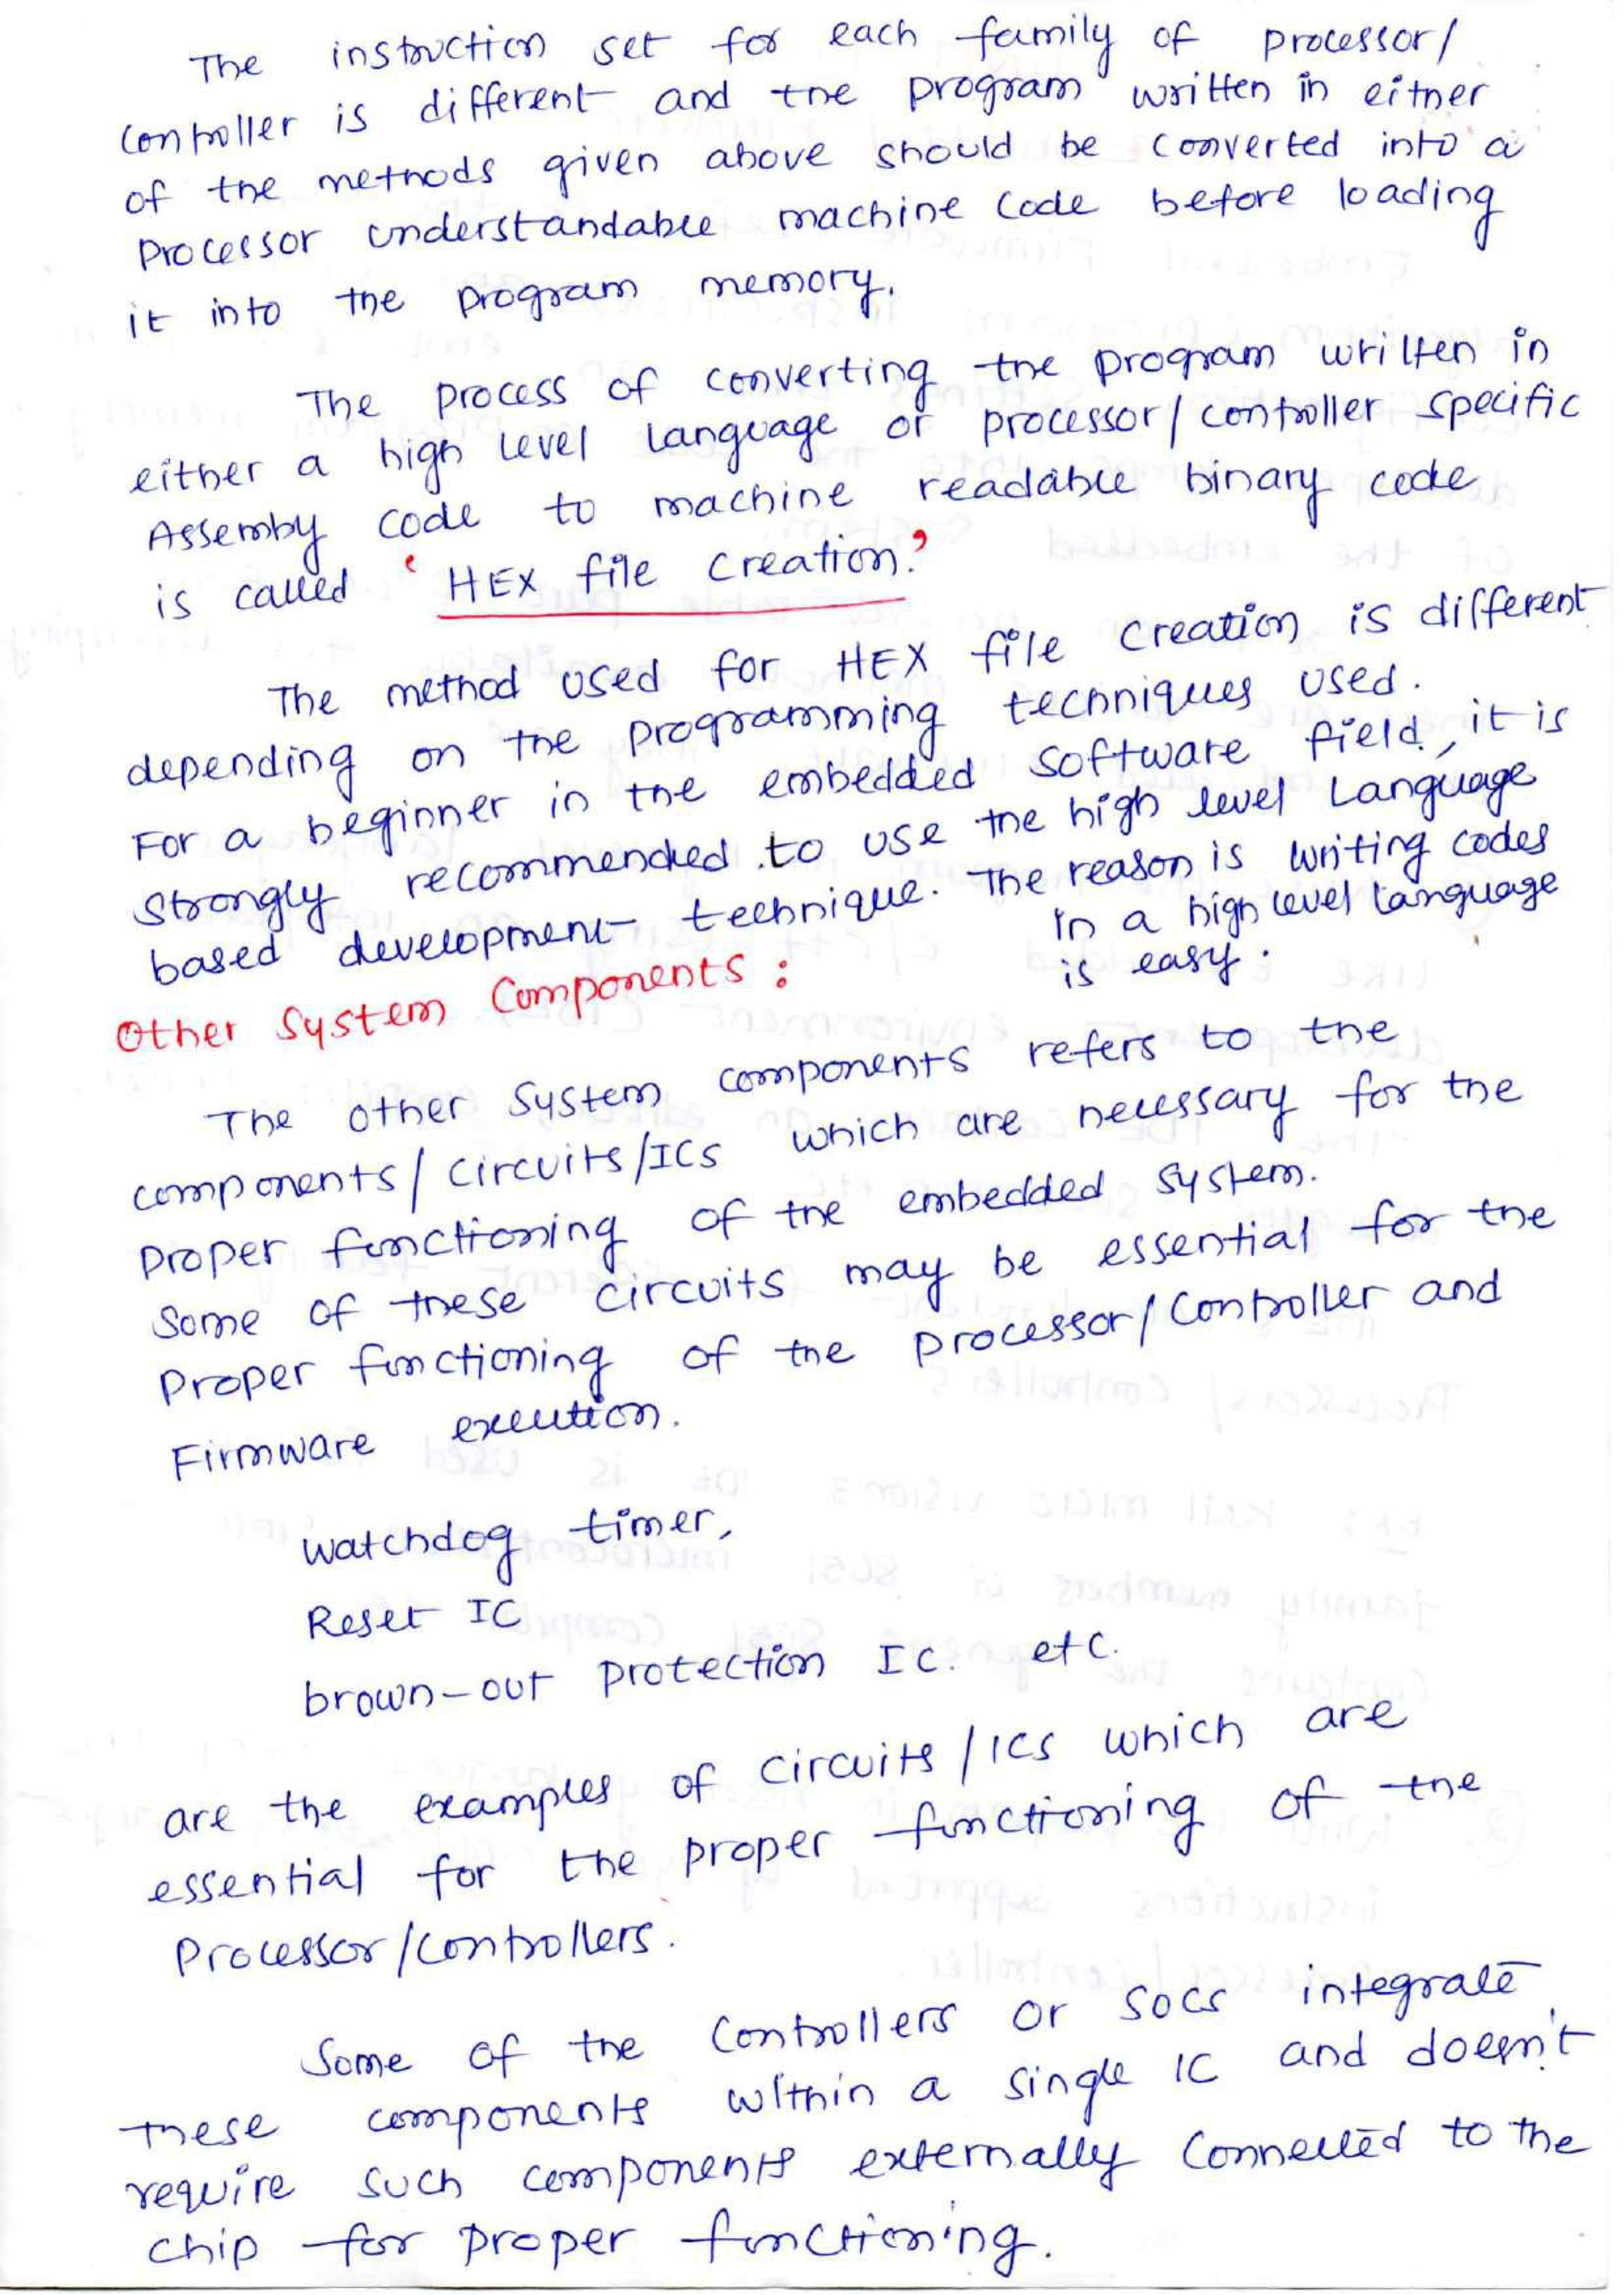 The instruction set for each family of processor/
controller is different and the program written in either
of the methods given above should be converted into a
Processor understandable machine code before loading
it into the program memory.
The process of converting the program written in
either a high level language or processor/controller specific
Assemby code to machine readable binary code
is called 'HEX file creation.'
The method used for HEX file creation is different
depending on the programming techniques used.
For a beginner in the embedded software field, it is
strongly recommended to use the high level Language
based development technique. The reason is writing codes
in a high level language
is easy.
Other System Components :
The other system components refers to the
components/circuits/ICs which are necessary for the
proper functioning of the embedded system.
Some of these circuits may be essential for the
Proper functioning of the processor/controller and
Firmware execution.
watchdog timer,
Reset IC
brown-out protection IC. etc.
are the examples of circuits/ICs which are
essential for the proper functioning of the
Processor/controllers.
Some of the controllers or SOCs integrate
these components within a single IC and doesn't
require such components externally connected to the
chip for proper functioning.